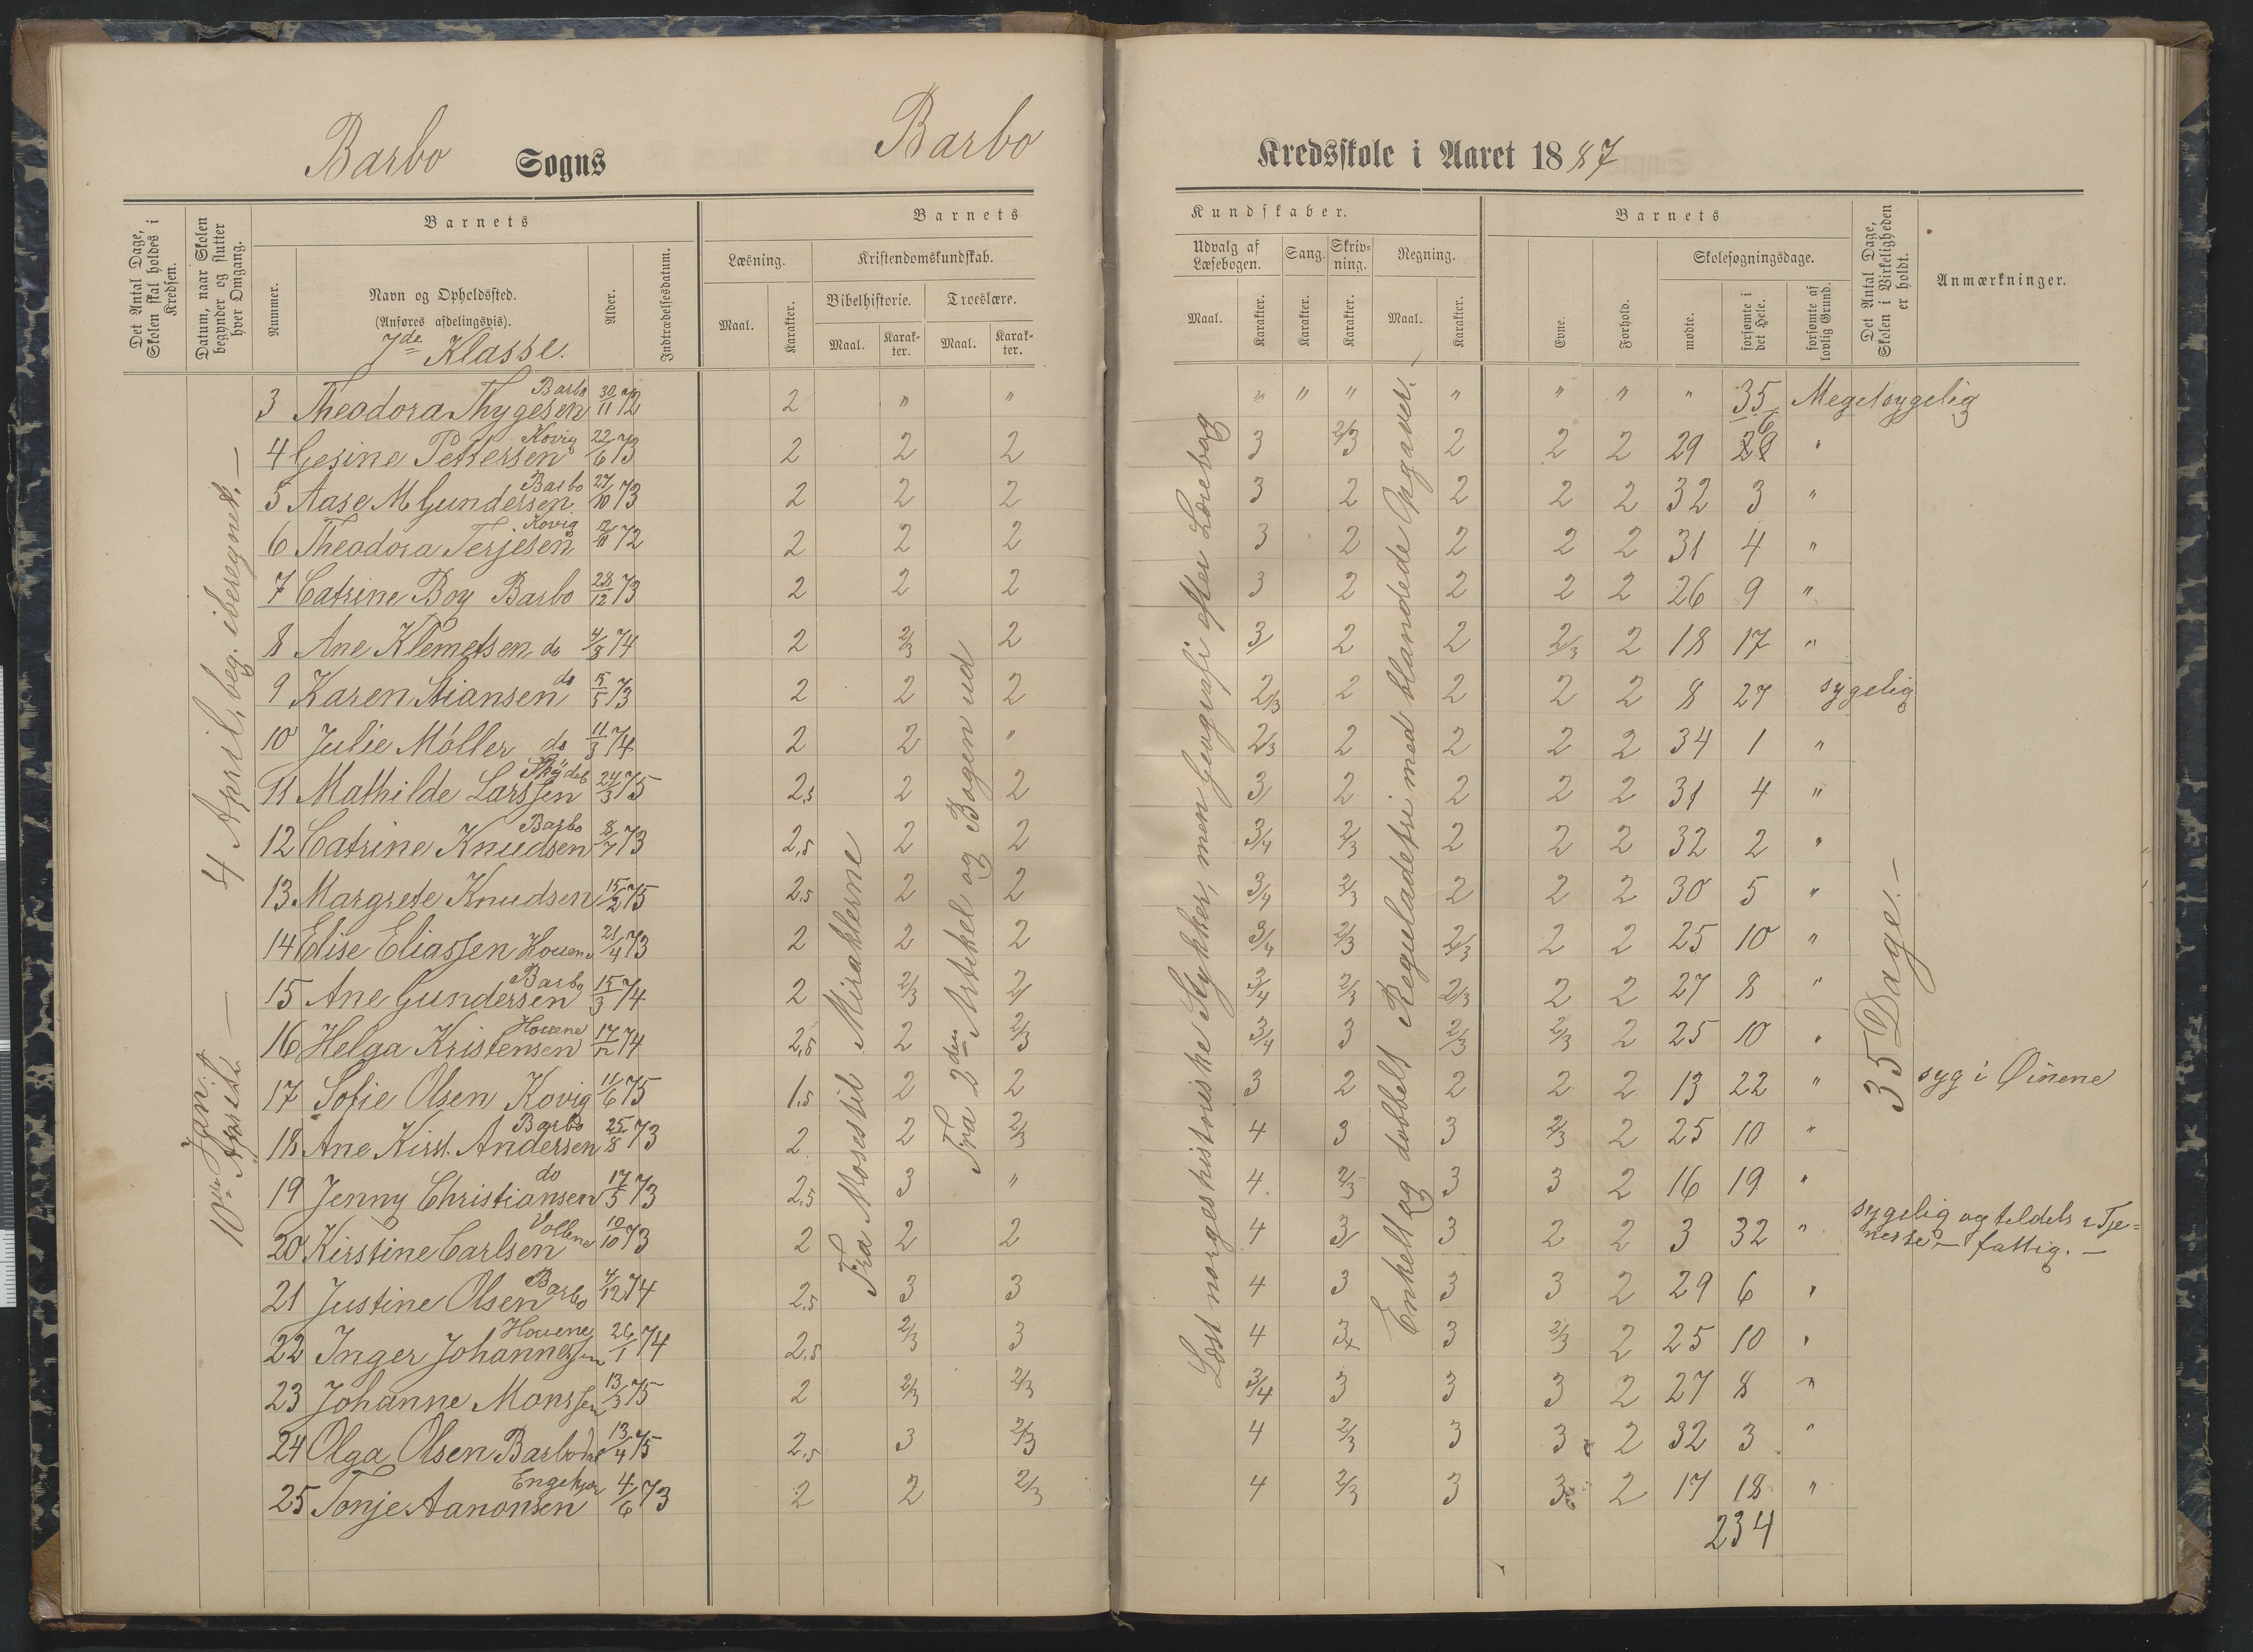 Barbo Sogns Barbo Kredsskole i Aaret 1887
Det Antal Dage, Skolen skal holdes i Kredsen.
Datum, naar Skolen begynder og slutter hver Omgang.
Barnets
Nummer.
Navn og Opholdssted.
(Anføres afdelingsvis).
7de Klasse.
Alder.
Indtrædelsesdatum.
Barnets
Læsning.
Maal. Karakter.
Kristendomskundskab.
Bibelhistorie. Troeslære.
Maal. Karakter. Maal. Karakter.
Kundskaber.
Udvalg af Læsebogen. Sang. Skrivning. Regning.
Maal. Karakter. Karakter. Karakter. Maal. Karakter.
Barnets
Evne. Forhold.
Skolesøgningsdage.
mødte. forsømte i det Hele. forsømte af lovlig Grund.
Det Antal Dage, Skolen i Virkeligheden er holdt.
Anmærkninger.
10de Jan. -
4 April, beg. iberegnet. -
Fra Moses til Miraklerne
Fra 2den Artikel og Bogen ud
Læst norgeshistoriske Stykker, men Geografi efter Lærebog
Enkelt og dobbelt Reguladetri med blandede Opgaver. -
35 Dage. -
3 Theodora Thygesen Barbo 30/11 72 2 " " " " " " " " " 35 Meget sygelig
4 Gesine Pettersen Kovig 22/6 73 2 2 2 3 2/3 2 2 2 29 6 "
5 Aase M Gundersen Barbo 27/10 73 2 2 2 3 2 2 2 2 32 3 "
6 Theodora Terjesen Kovig 12/11 72 2 2 2 3 2 2 2 2 31 4 "
7 Catrine Boy Barbo 28/12 73 2 2 2 3 2 2 2 2 26 9 "
8 Ane Klemetsen do 4/3 74 2 2/3 2 3 2 2 2/3 2 18 17 "
9 Karen Stiansen do 15/5 73 2 2 2 2/3 2 2 2 2 8 27 sygelig
10 Julie Möller do 11/3 74 2 2 " 2/3 2 2 2 2 34 1 "
11 Mathilde Larssen 24/3 75 2,5 2 2 3 2 2 2 2 31 4 "
12 Catrine Knudsen Barbo 8/7 73 2,5 2 2 3/4 2/3 2 2 2 32 2 "
13 Margrete Knudsen 15/2 75 2,5 2 2 3/4 2/3 2 2 2 30 5 "
14 Elise Eliassen Houene 21/4 73 2 2 2 3/4 2/3 2/3 2 2 25 10 "
15 Ane Gundersen Barbo 15/3 74 2 2/3 2 3/4 2/3 2/3 2 2 27 8 "
16 Helga Kristensen Houene 17/12 74 2,5 2 2/3 3/4 3 2/3 2/3 2 25 10 "
17 Sofie Olsen Kovig 11/6 75 1,5 2 2 3 2 2 2 2 13 22 " syg i Øinene
18 Ane Kirst. Andersen Barbo 25/8 73 2 2 2/3 4 3 3 2/3 2 25 10 "
19 Jenny Christiansen do 17/5 73 2,5 3 " 4 2/3 3 3 2 16 19 "
20 Kirstine Carlsen Vollene 10/10 73 2 2 2 4 3 3 2 2 3 32 " sygelig og tildels i Tje=
neste - fattig. -
21 Justine Olsen Barbo 4/12 74 2,5 3 3 4 3 3 3 2 29 6 "
22 Inger Johannessen Houene 26/1 74 2,5 2/3 3 4 3/4 3 2/3 2 25 10 "
23 Johanne Monssen 13/3 75 2 2/3 2/3 3/4 3 3 3 2 27 8 "
24 Olga Olsen Barbodal 13/4 75 2,5 3 2/3 4 2/3 3 3 2 32 3 "
25 Tonje Aanonsen Engekjær 4/6 73 2 2 2/3 4 2/3 3 3 2 17 18 "
234